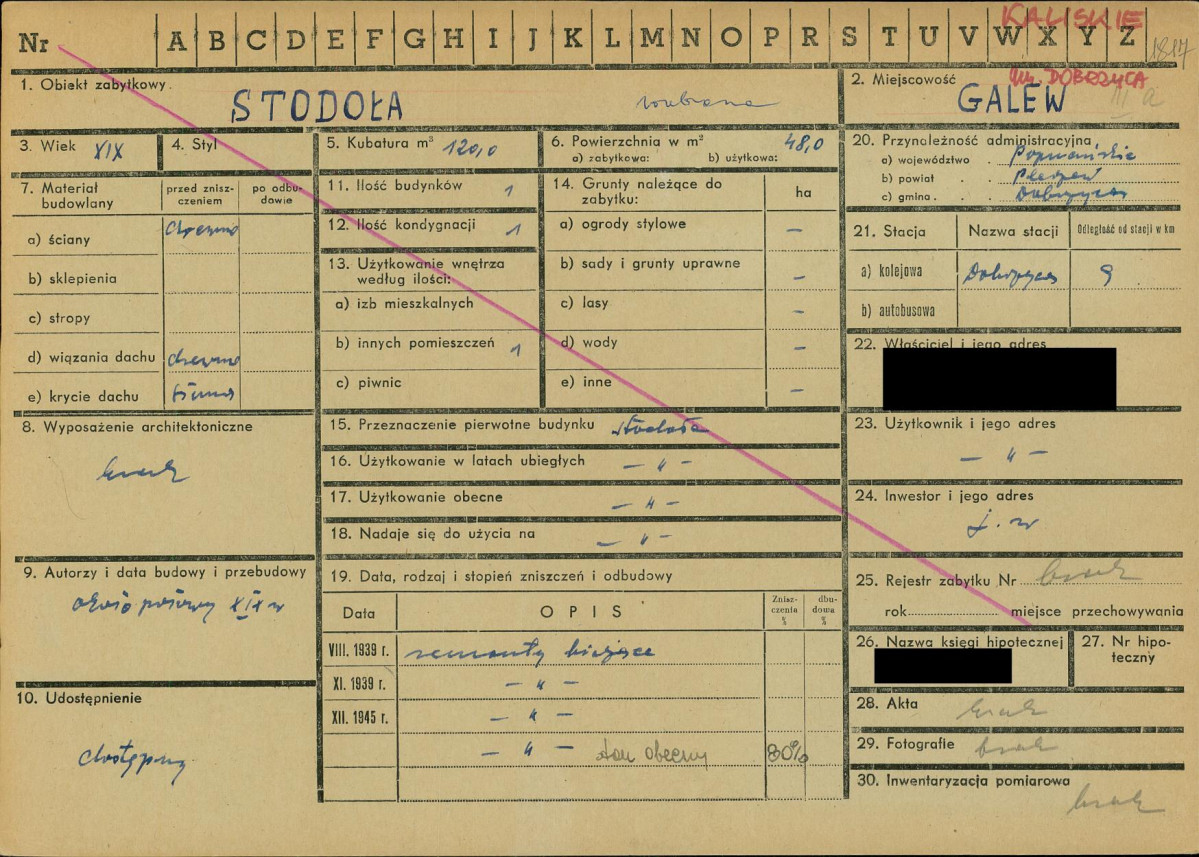 Nr A B C D E F G H I J K L M N O P R S T U V W X Y Z
KALISKIE
1817
1. Obiekt zabytkowy
STODOŁA
2. Miejscowość
gm. DOBRZYCA
GALEW
3. Wiek XIX
4. Styl
5. Kubatura m³ 120,0
6. Powierzchnia w m² 48,0
a) zabytkowa: b) użytkowa:
7. Materiał budowlany
przed zniszczeniem
po odbudowie
a) ściany drewno
b) sklepienia
c) stropy
d) wiązania dachu drewno
e) krycie dachu słoma
8. Wyposażenie architektoniczne
brak
9. Autorzy i data budowy i przebudowy
około połowy XIX w
10. Udostępnienie
dostępny
11. Ilość budynków 1
12. Ilość kondygnacji 1
13. Użytkowanie wnętrza
według ilości:
a) izb mieszkalnych
b) innych pomieszczeń 1
c) piwnic
14. Grunty należące do
zabytku:
ha
a) ogrody stylowe –
b) sady i grunty uprawne –
c) lasy –
d) wody –
e) inne –
15. Przeznaczenie pierwotne budynku stodoła
16. Użytkowanie w latach ubiegłych – " –
17. Użytkowanie obecne – " –
18. Nadaje się do użycia na – " –
19. Data, rodzaj i stopień zniszczeń i odbudowy
Data OPIS Zniszczenia % dbudowa %
VIII. 1939 r. remonty bieżące
XI. 1939 r. – " –
XII. 1945 r. – " –
– " – stan obecny 80%
20. Przynoleżność administracyjna
a) województwo . Poznańskie
b) powiat . . Pleszew
c) gmina . . . Dobrzyca
21. Stacja Nazwa stacji Odległość od stacji w km
a) kolejowa Dobrzyca 9
b) autobusowa
22. Właściciel i jego adres
23. Użytkownik i jego adres
– " –
24. Inwestor i jego adres
j. w
25. Rejestr zabytku Nr brak
rok miejsce przechowywania
26. Nazwa księgi hipotecznej
27. Nr hipoteczny
28. Akta brak
29. Fotografie brak
30. Inwentaryzacja pomiarowa
brak